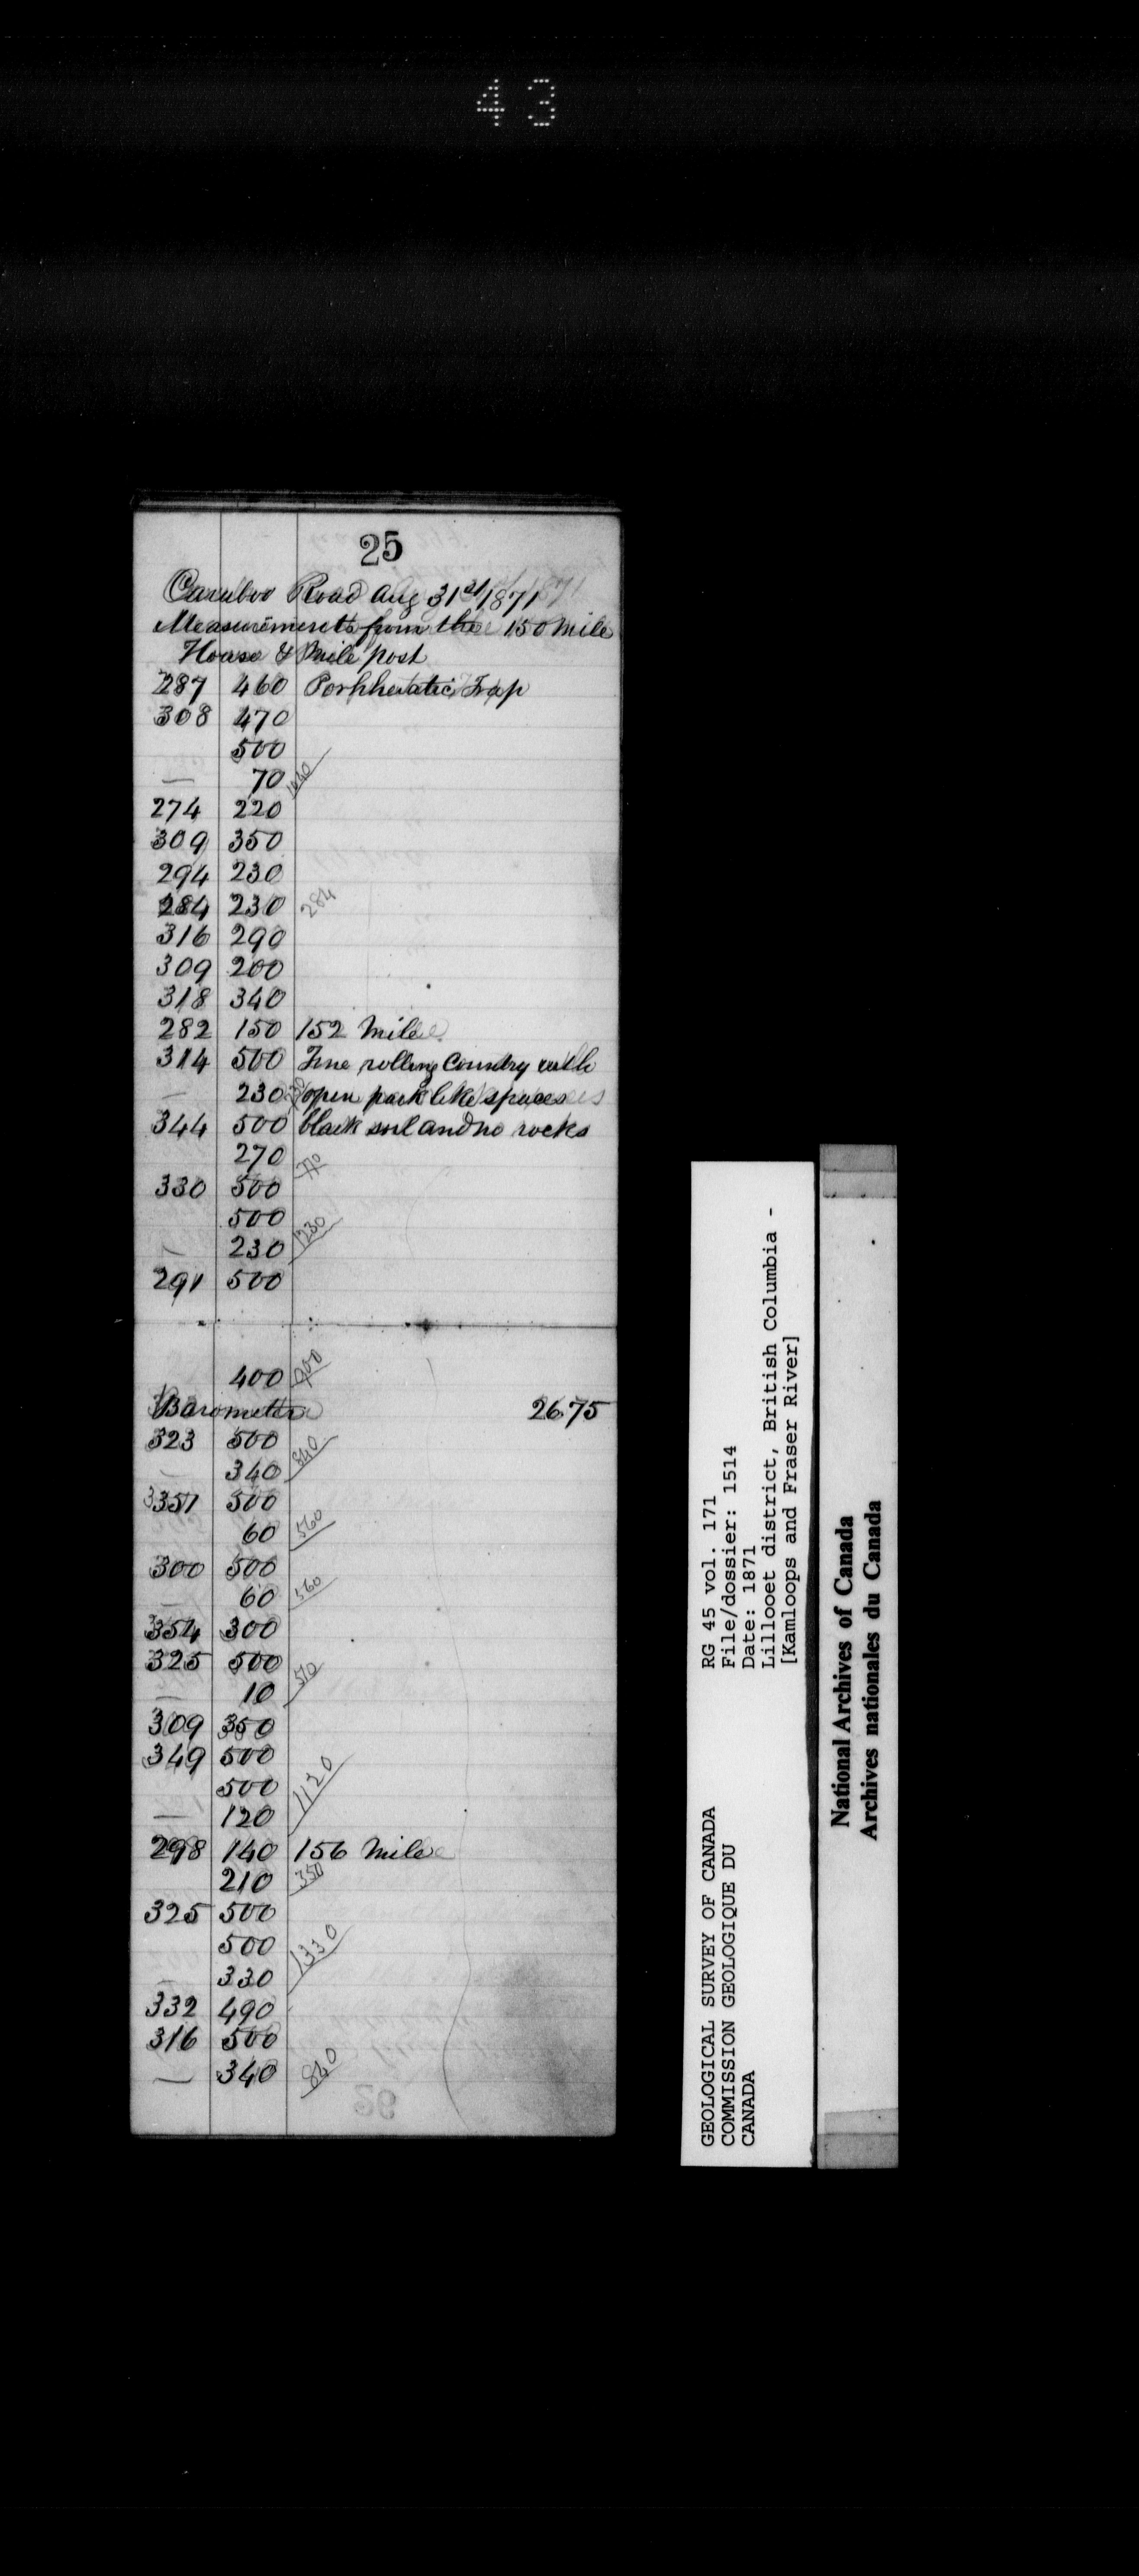 43
25
Cariboo Road Aug 31st/1871
Measurements from the 150 Mile
House & Mile post
287 460 Porphhertatic Trap
308 470
500
— 70 1040
274 220
309 350
294 230
284 230 284
316 290
309 200
318 340
282 150 152 Mile
314 500 Fine rolling Country with
— 230 730 open park like spaces
344 500 black soil and no rocks
270 770
330 500
500
— 230 1230
291 500
400 900
Barometer 2675
323 500
— 340 840
3351 500
60 560
300 500
— 60 560
354 300
325 500
— 10 510
309 350
349 500
500
— 120 1120
298 140 156 Mile
210 350
325 500
500
— 330 1330
332 490
316 500
— 340 840
GEOLOGICAL SURVEY OF CANADA
COMMISSION GEOLOGIQUE DU
CANADA
RG 45 vol. 171
File/dossier: 1514
Date: 1871
Lillooet district, British Columbia -
[Kamloops and Fraser River]
National Archives of Canada
Archives nationales du Canada